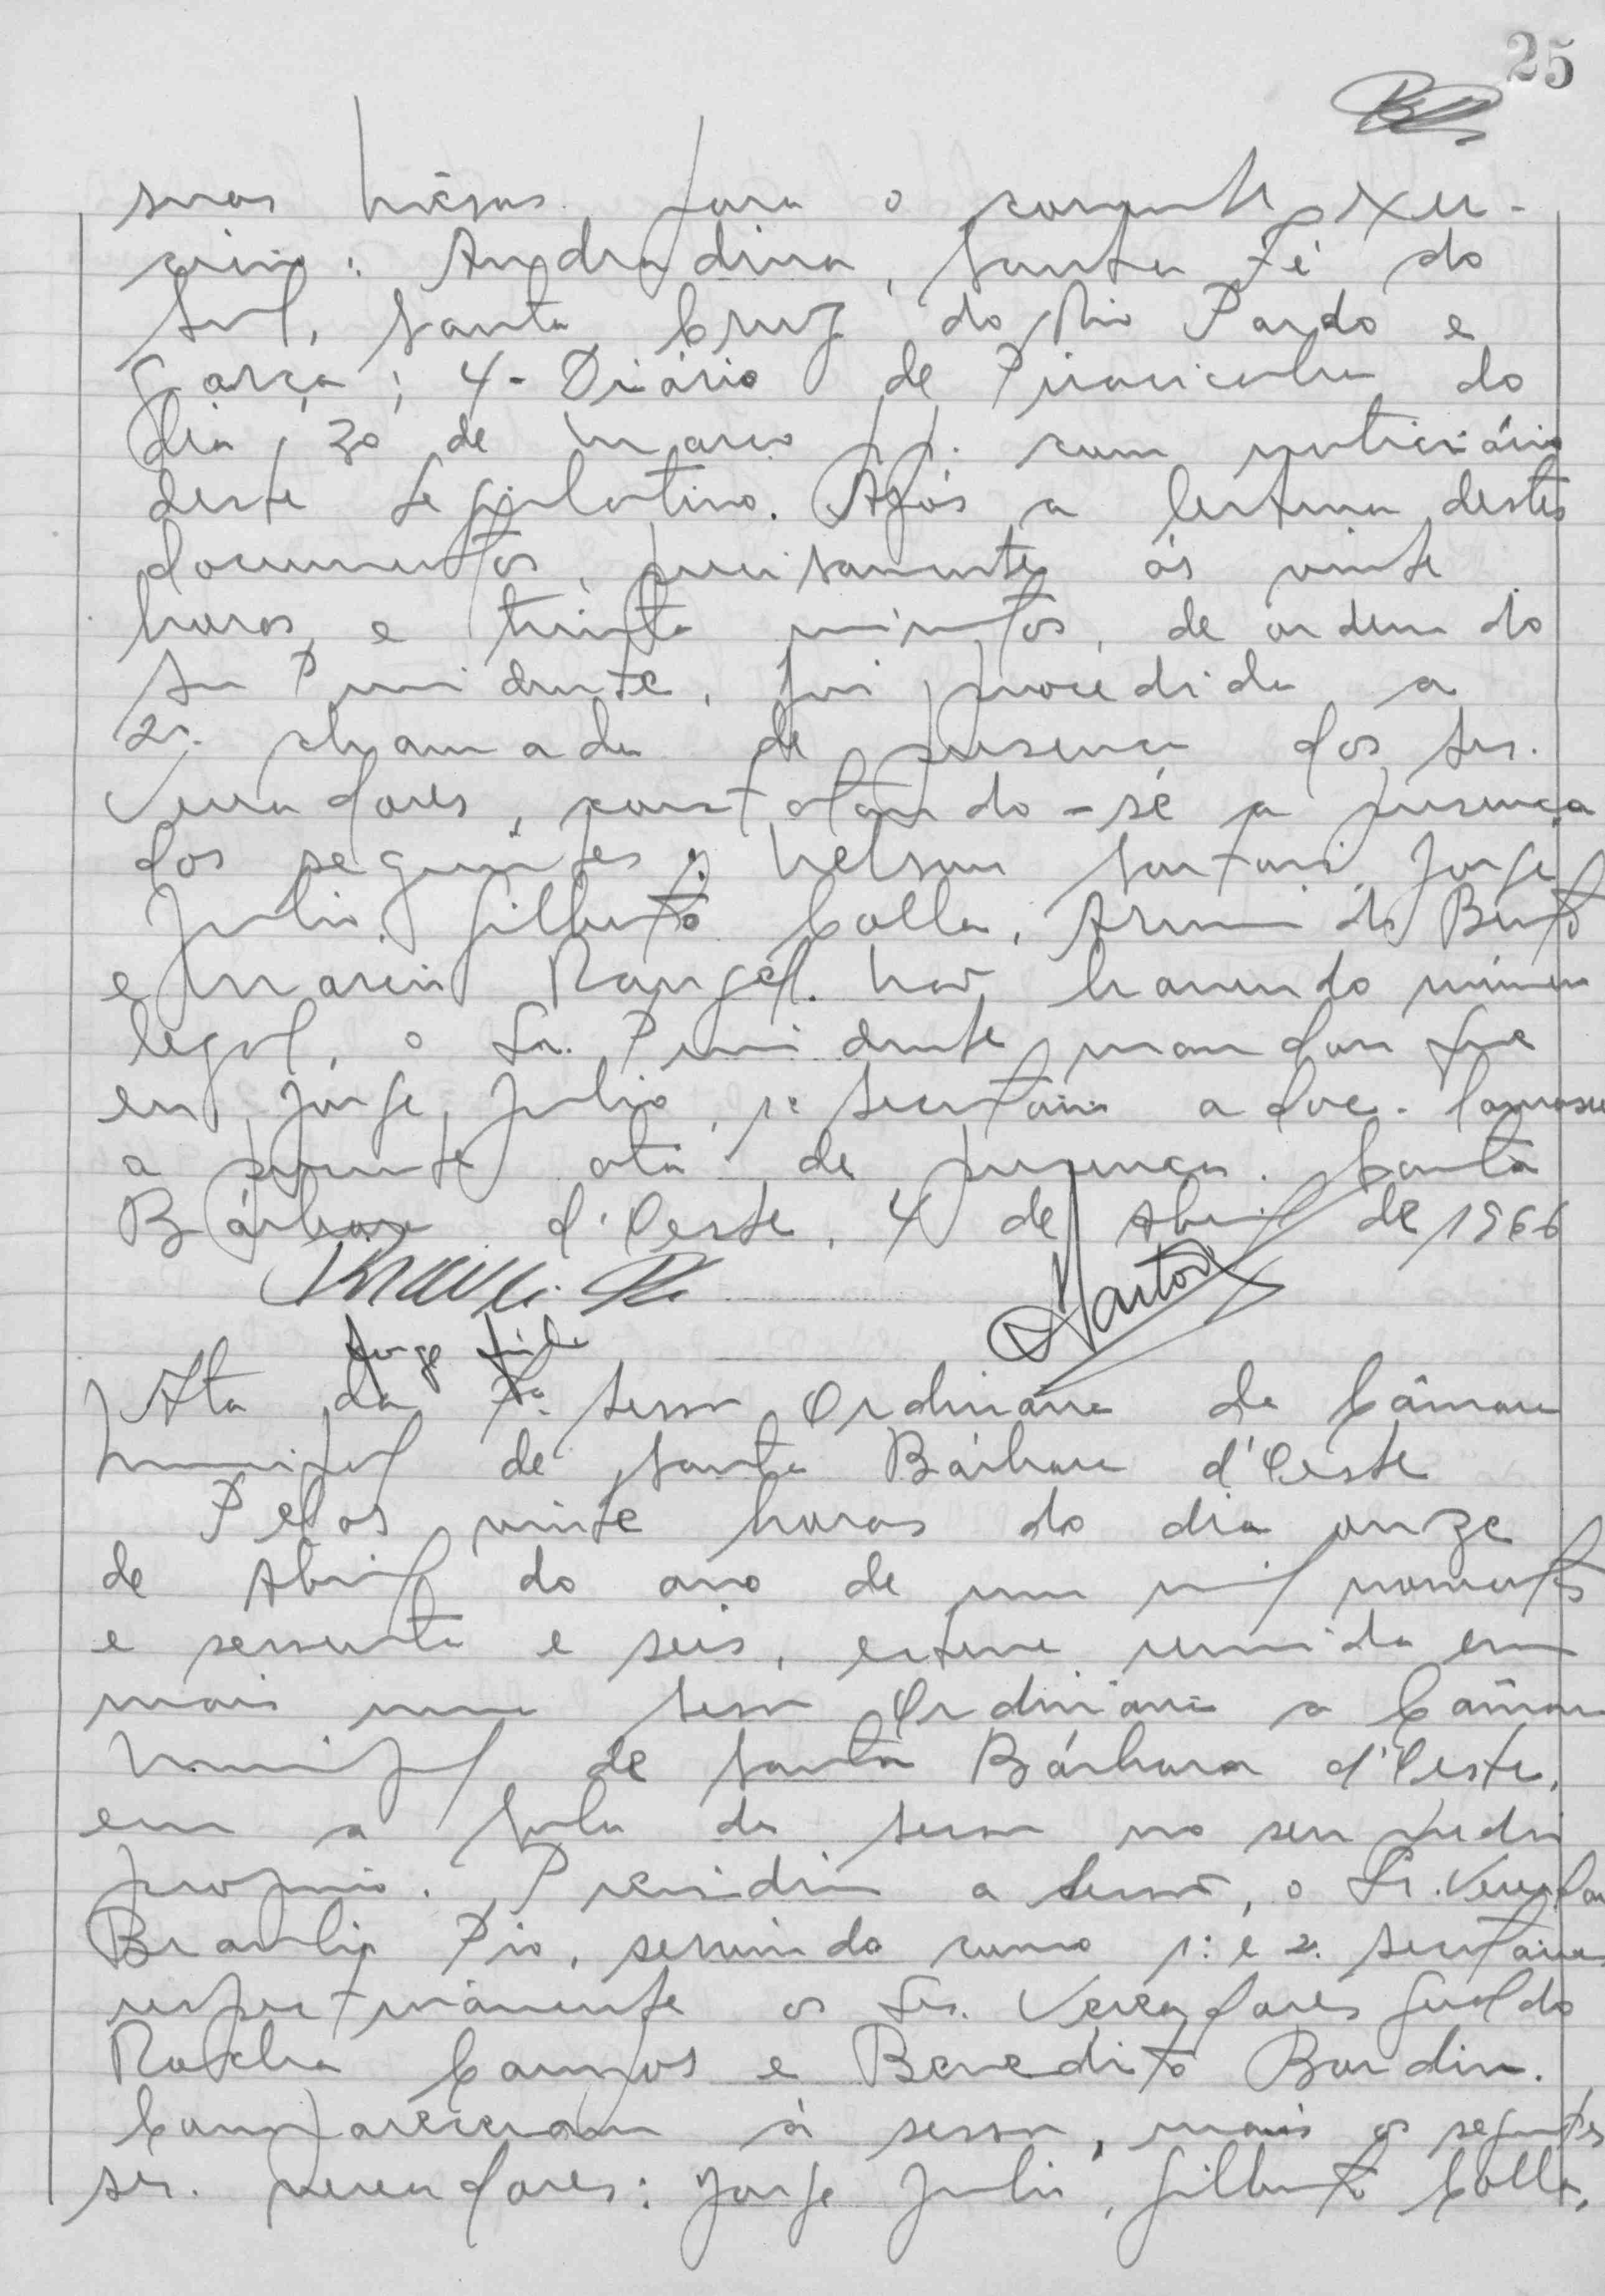 25
suas mêsas para o corrente exer-
cicio: Andradina, Santa Fé do
Sul, Santa Cruz do Rio Pardo e
Garça; 4- Diário de Piracicaba do
dia 30 de março p.p. com noticiário
deste Legislativo. Após a leitura destes
documentos, precisamente ás vinte
horas e trinta minutos, de ordem do
Sr Presidente, foi procedida a
2a. chamada de presença dos Srs.
Vereadores, constatando-se a presença
dos seguintes: Nelson Sartori, Jorge
Julio, Gilberto Colla, Armindo Bento
e Marcio Rangel. Não havendo número
legal, o Sr. Presidente mandou que
eu, Jorge Julio, 1º Secretário adoc. lavrasse
a presente ata de presença. Santa
Bárbara d'Oeste, 4 de Abril de 1966
Sartori
Jorge Julio
Ata da 7ª. Sessão Ordinária da Câmara
Municipal de Santa Bárbara d'Oeste
Pelas vinte horas do dia onze
de Abril do ano de um mil novecentos
e sessenta e seis, esteve reunida em
mais uma Sessão Ordinária a Câmara
Municipal de Santa Bárbara d'Oeste,
em a Sala da Sessão no seu prédio
proprio. Presidiu a Sessão, o Sr. Vereador
Braulio Pio, servindo como 1º e 2º Secretários
respectivamente os Srs. Vereadores Geraldo
Rocha Campos e Benedito Bordin.
Compareceram á sessão, mais os seguintes
srs. vereadores: Jorge Julio, Gilberto Colla,